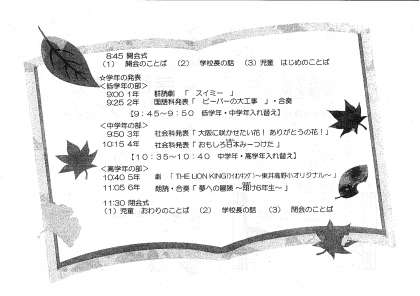 8:45 開会式
(1) 開会のことば (2) 学校長の話 (3) 児童 はじめのことば
☆学年の発表
<低学年の部>
9:00 1年 群読劇 「 スイミー 」
9:25 2年 国語科発表「 ビーバーの大工事 」・合奏
【9:45~9:50 低学年・中学年入れ替え】
<中学年の部>
9:50 3年 社会科発表「 大阪に咲かせたい花! ありがとうの花!」
10:15 4年 社会科発表「 おもしろ日本みーつけた 」
【10:35~10:40 中学年・高学年入れ替え】
<高学年の部>
10:40 5年 劇 「 THE LION KING(ライオンキング)~東井高野小オリジナル~ 」
11:05 6年 朗読・合奏「 夢への冒険 ~翔け6年生~ 」
11:30 閉会式
(1) 児童 おわりのことば (2) 学校長の話 (3) 閉会のことば